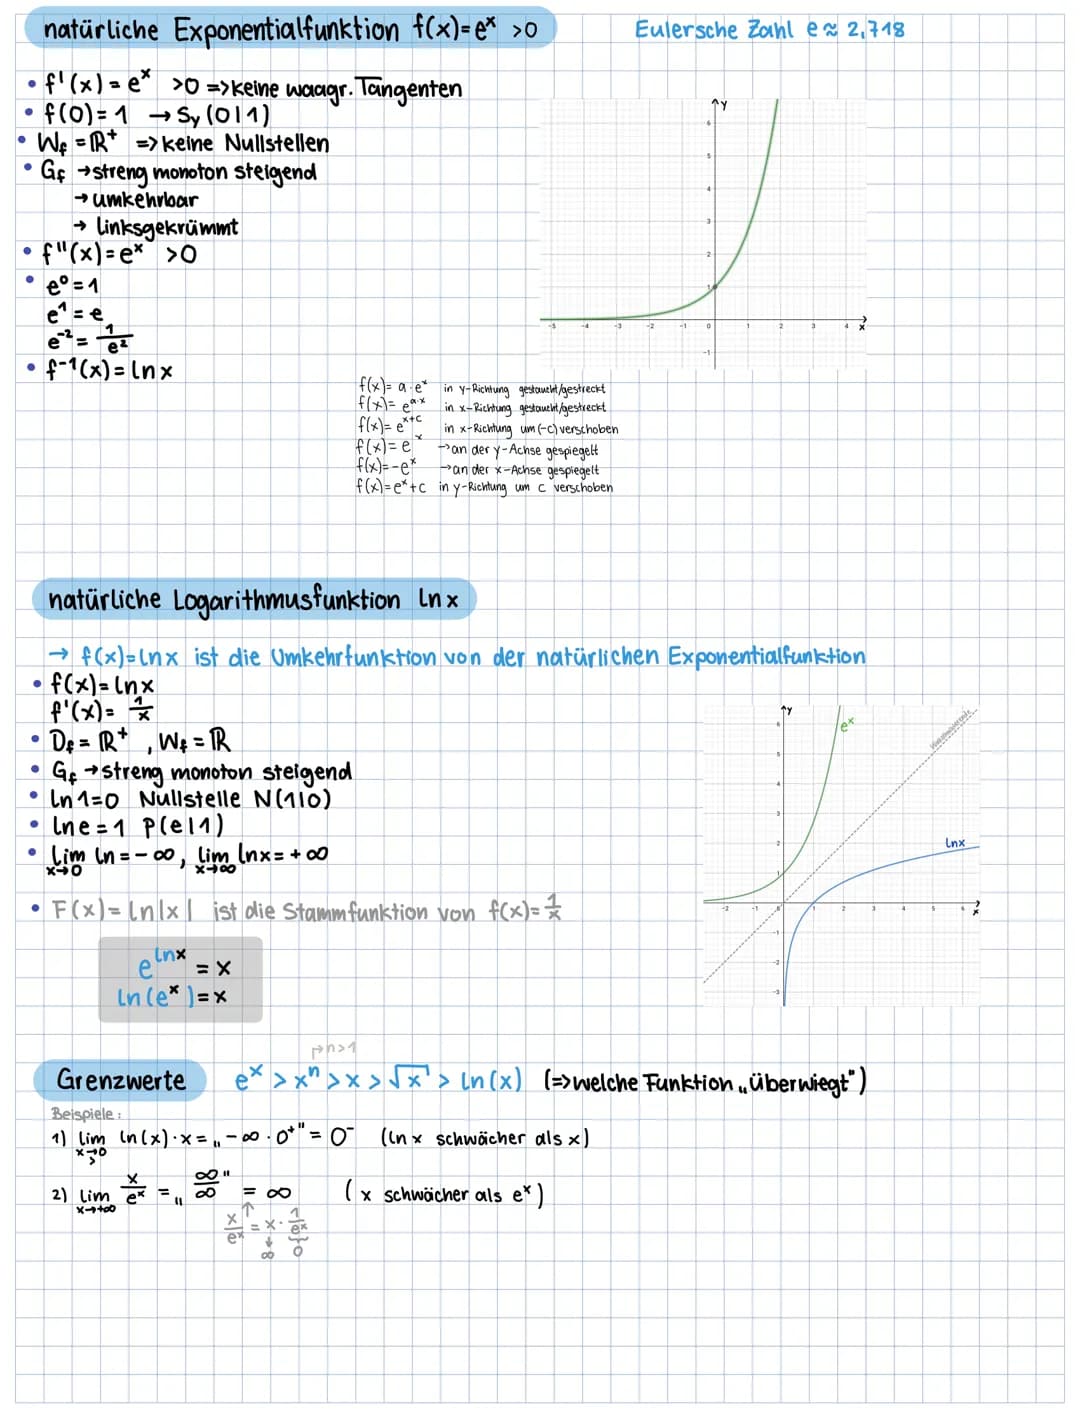 natürliche Exponentialfunktion f(x)=eˣ >0
Eulersche Zahl e≈ 2,718
• f'(x) = eˣ >0 => keine waagr. Tangenten
• f(0) = 1 → Sy (0|1)
• Wf = ℝ⁺ => keine Nullstellen
• Gf → streng monoton steigend
→ umkehrbar
→ linksgekrümmt
• f''(x) = eˣ >0
• e⁰ = 1
e¹ = e
e⁻² = 1/e²
• f⁻¹(x) = ln x
y
6
5
4
3
2
1
-1
-5 -4 -3 -2 -1 0 1 2 3 4 x
f(x)= a·eˣ in y-Richtung gestaucht/gestreckt
f(x)= e^(a·x) in x-Richtung gestaucht/gestreckt
f(x)= e^(x+c) in x-Richtung um (-c) verschoben
f(x)= e^(-x) → an der y-Achse gespiegelt
f(x)= -eˣ → an der x-Achse gespiegelt
f(x)= eˣ+c in y-Richtung um c verschoben
natürliche Logarithmusfunktion ln x
→ f(x)=lnx ist die Umkehrfunktion von der natürlichen Exponentialfunktion
• f(x)= lnx
f'(x)= 1/x
• Df = ℝ⁺ , Wf = ℝ
• Gf → streng monoton steigend
• ln1=0 Nullstelle N(1|0)
• lne = 1 P(e|1)
• lim x→0 ln = -∞, lim x→∞ lnx = +∞
• F(x)= ln|x| ist die Stammfunktion von f(x)= 1/x
e^(lnx) = x
ln(eˣ) = x
y
eˣ
lnx
6
5
4
3
2
1
-1
-2
-3
-2 -1 0 1 2 3 4 5 6 x
n>1
Grenzwerte eˣ > xⁿ > x > √x > ln(x) (=> welche Funktion „überwiegt")
Beispiele:
1) lim x→0 > ln(x)·x = „-∞ · 0⁺" = 0⁻ (ln x schwächer als x)
2) lim x→+∞ x/eˣ = „∞/∞" = ∞ (x schwächer als eˣ)
x/eˣ = x · 1/eˣ
∞ 0